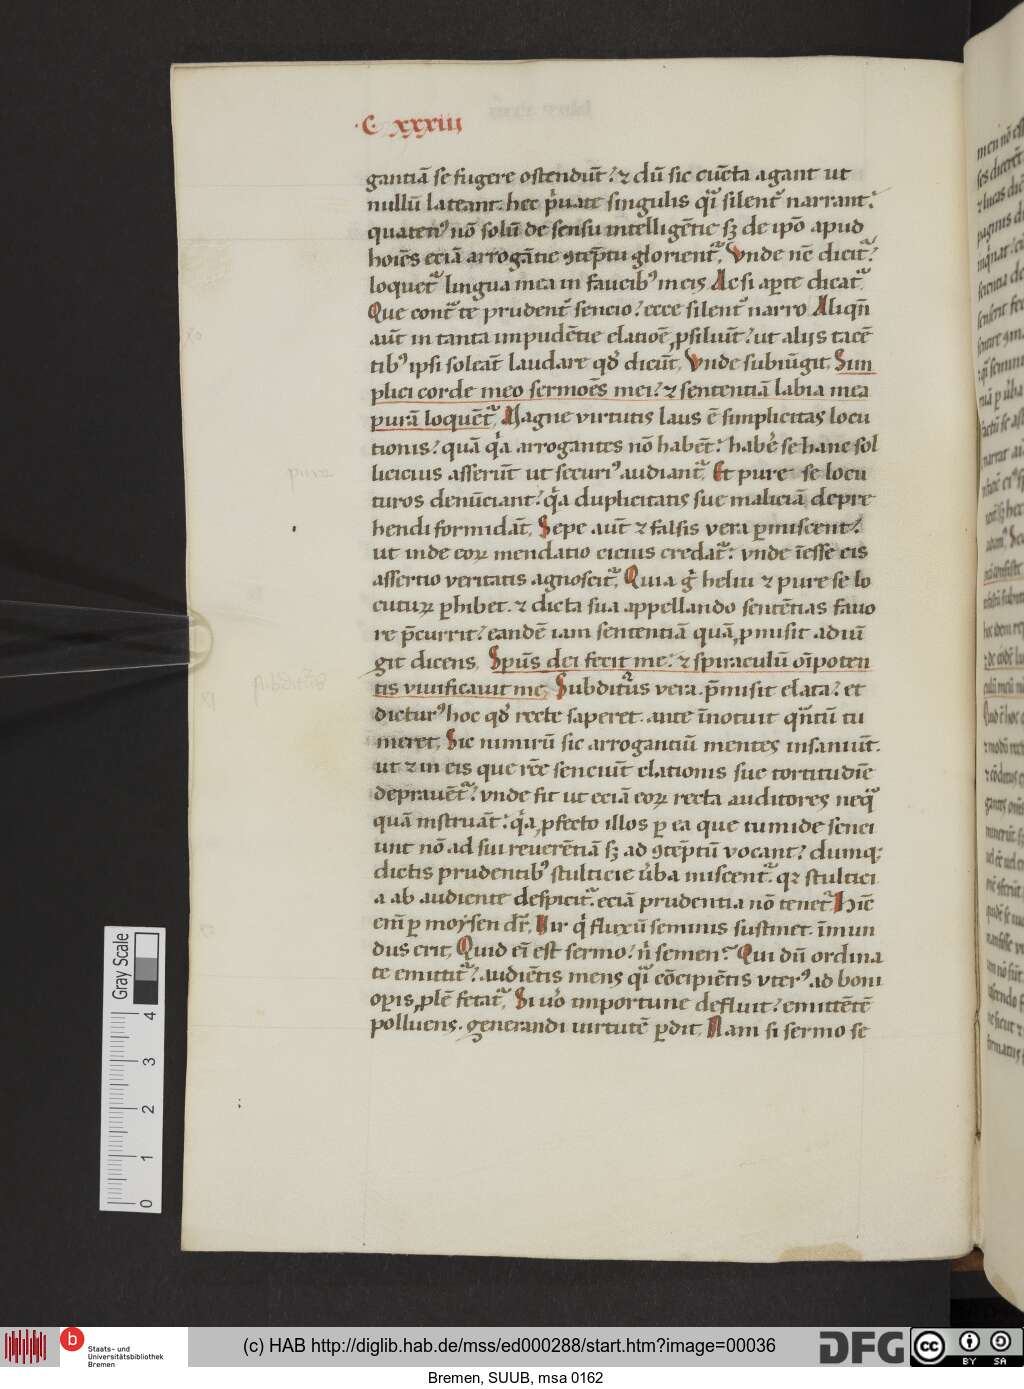 .C. xxxiii
gantiā se fugere ostendūt? ⁊ dū sic cūcta agant ut
nullū lateant. hec p̓uate singulis q̓i silent̓ narrant.
quaten9 nō solū de sensu intelligētie sꝫ de ip̄o apud
hoīes eciā arrogātie 9tēptu glorient᷑. Vnde nē dicit᷑?
loquet᷑ lingua mea in faucib9 meis Ac si aꝑte dicat᷑.
Que cont᷑ te prudent᷑ sencio? ecce silent᷑ narro Aliqn̄
aūt in tanta impudētie elatiōe ꝓsiliūt? ut alijs tacē
tib9 ipsi soleāt laudare qd̓ dicūt. Vnde subiūgit. Sim
plici corde meo sermoēs mei? ⁊ sententiā labia mea
purā loquēt᷑. Magne virtutis laus ē simplicitas locu
tionis? quā q̓a arrogantes nō habēt? habe̓ se hanc sol
licicius asserūt ut securi9 audiant᷑. Et pure se locu
turos denūciant? q̓a duplicitatis sue maliciā depre
hendi formidāt. Sepe aūt ⁊ falsis vera ꝑmiscent?
ut inde eoꝝ mendatio cicius credat᷑? vnde īesse eis
assertio veritatis agnoscit᷑. Quia g̓ heliu ⁊ pure se lo
cuturꝝ ꝑhibet. ⁊ dicta sua appellando sentētias fauo
re p̄currit? eandē iam sententiā quā ꝓmisit adiū
git dicens. Sp̄us dei fecit me? ⁊ spiraculū oīpoten
tis viuificauit me. Subdit᷑us vera. p̄misit elata? et
dictur9 hoc qd̓ recte saperet. ante īnotuit qn̄tū tu
meret. Sic nimirū sic arrogantiū mentes insaniūt.
ut ⁊ in eis que rēc senciūt elationis sue tortitudiē
deprauēt᷑? vnde fit ut eciā eoꝝ recta auditores neq̓
quā instruāt? q̓a ꝓfecto illos ꝑ ea que tumide senci
unt nō ad sui reuerētiā sꝫ ad 9tēptū vocant? dumqꝫ
dictis prudentib9 stulticie ūba miscent᷑. qꝛ stultici
a ab audiente despicit᷑. eciā prudentia nō tenet᷑. Hīc
em̄ ꝑ moysen dr̄. Vir q̓ fluxū seminis sustinet. īmun
dus erit. Quid eī est sermo? n̓ semen? Qui dū ordina
te emittit᷑? audiētis mens q̓i cōcipiētis vter9 ad boni
oꝑis ꝓlē fetat᷑. Si uo̓ importune defluit? emittētē
polluens. generandi uirtutē ꝑdit. Nam si sermo se
Gray Scale
4
3
2
1
0
b
Staats- und
Universitätsbibliothek
Bremen
(c) HAB http://diglib.hab.de/mss/ed000288/start.htm?image=00036
DFG
cc
BY SA
Bremen, SUUB, msa 0162